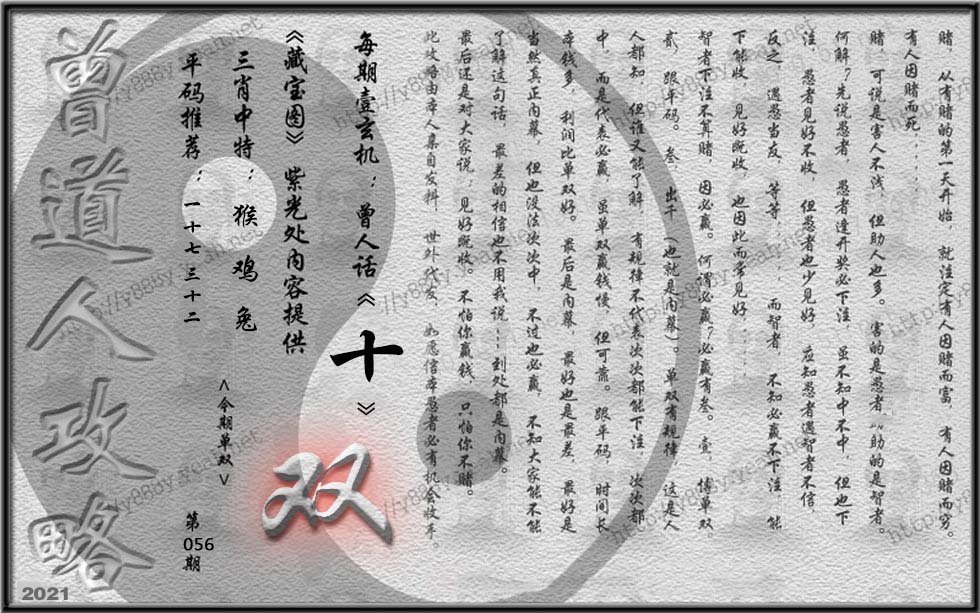 赌, 从有赌的第一天开始, 就注定有人因赌而富, 有人因赌而穷。
有人因赌而死......
赌, 可说是害人不浅, 但助人也多。 害的是愚者, 助的是智者。
何解?先说愚者, 愚者逢开奖必下注 虽不知中不中, 但也下
注, 愚者见好不收, 但愚者也少见好, 应知愚者遇智者不信,
反之, 遇愚当友, 等等...... 而智者, 不知必赢不下注, 能
下能收, 见好既收, 也因此而常见好......
智者下注不算赌, 因必赢。 何谓必赢?必赢有叁。 壹, 博单双,
贰, 跟平码。 叁, 出千 (也就是内幕)。 单双有规律, 这是人
人都知 但谁又能了解, 有规律不代表次次都能下注, 次次都
中, 而是代表必赢, 虽单双赢钱慢, 但可靠。 跟平码, 时间长
本钱多, 利润比单双好。 最后是内幕, 最好也是最差, 最好是
当然真正内幕, 但也没法次次中, 不过也必赢, 不知大家能不能
了解这句话, 最差的相信也不用我说...到处都是内幕。
最后还是对大家说:见好既收。 不怕你赢钱, 只怕你不赌。
此攻略由本人集自发辩, 世外代友, 如愿信本愚者必有机会收手。
每期壹玄机: 曾人话《十》
《藏宝图》 紫光处内容提供
三肖中特: 猴 鸡 兔
平码推荐: 一十七 三十二
<今期单双>
双
第
056
期
曾道人攻略
2021